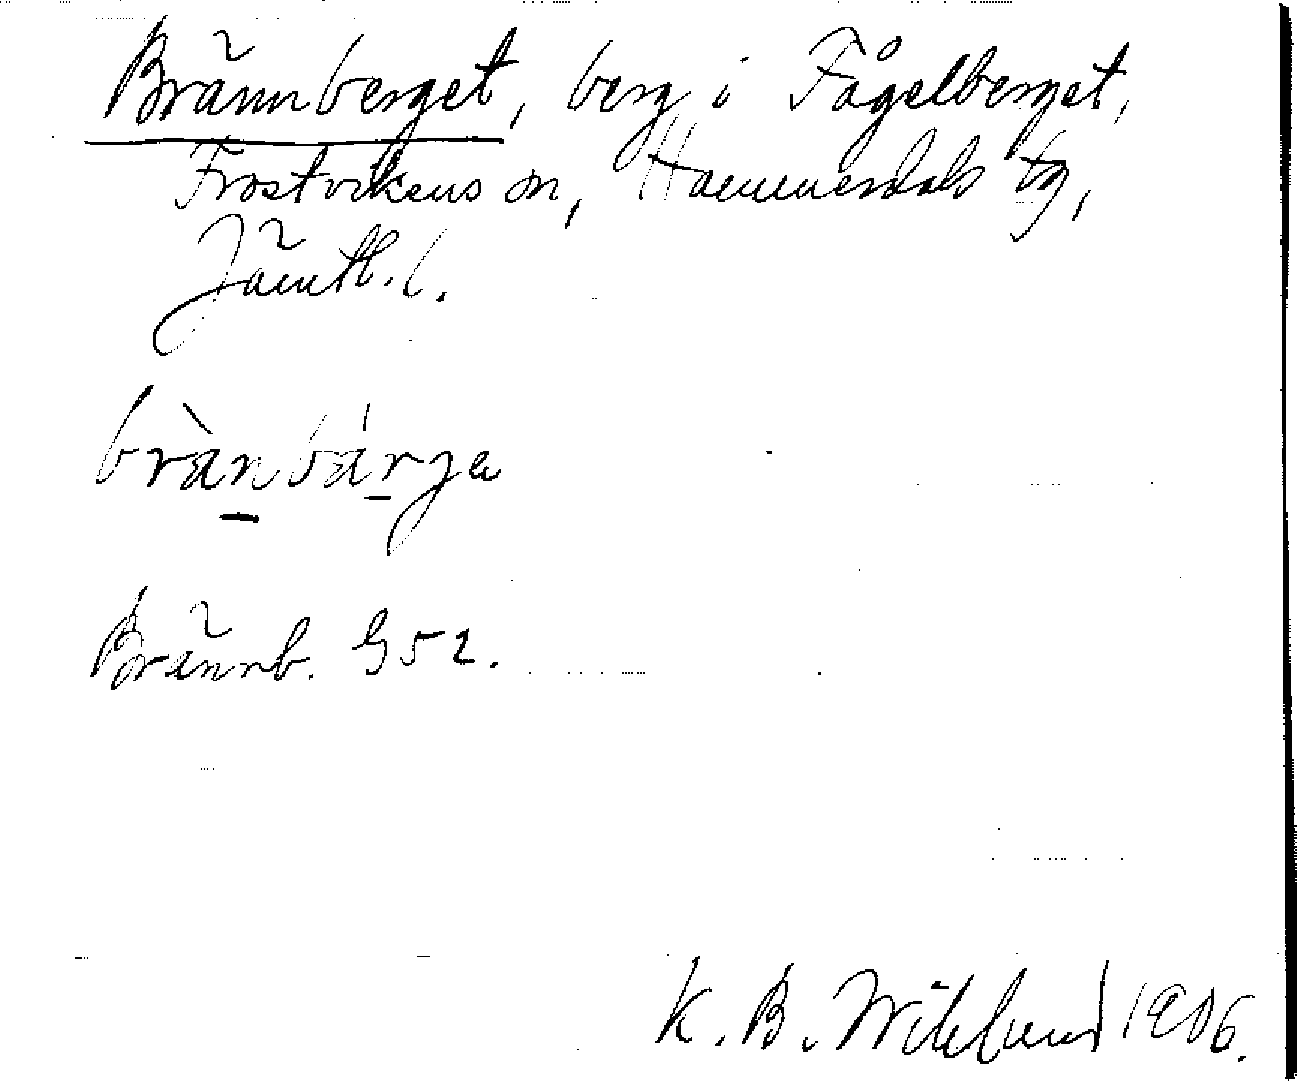 Brännberget, berg i Fågelberget,
Frostvikens sn, Hammerdals tg,
Jämtl. l.
brànbárja
Brännb. G52.
K. B. Wiklund 1906.